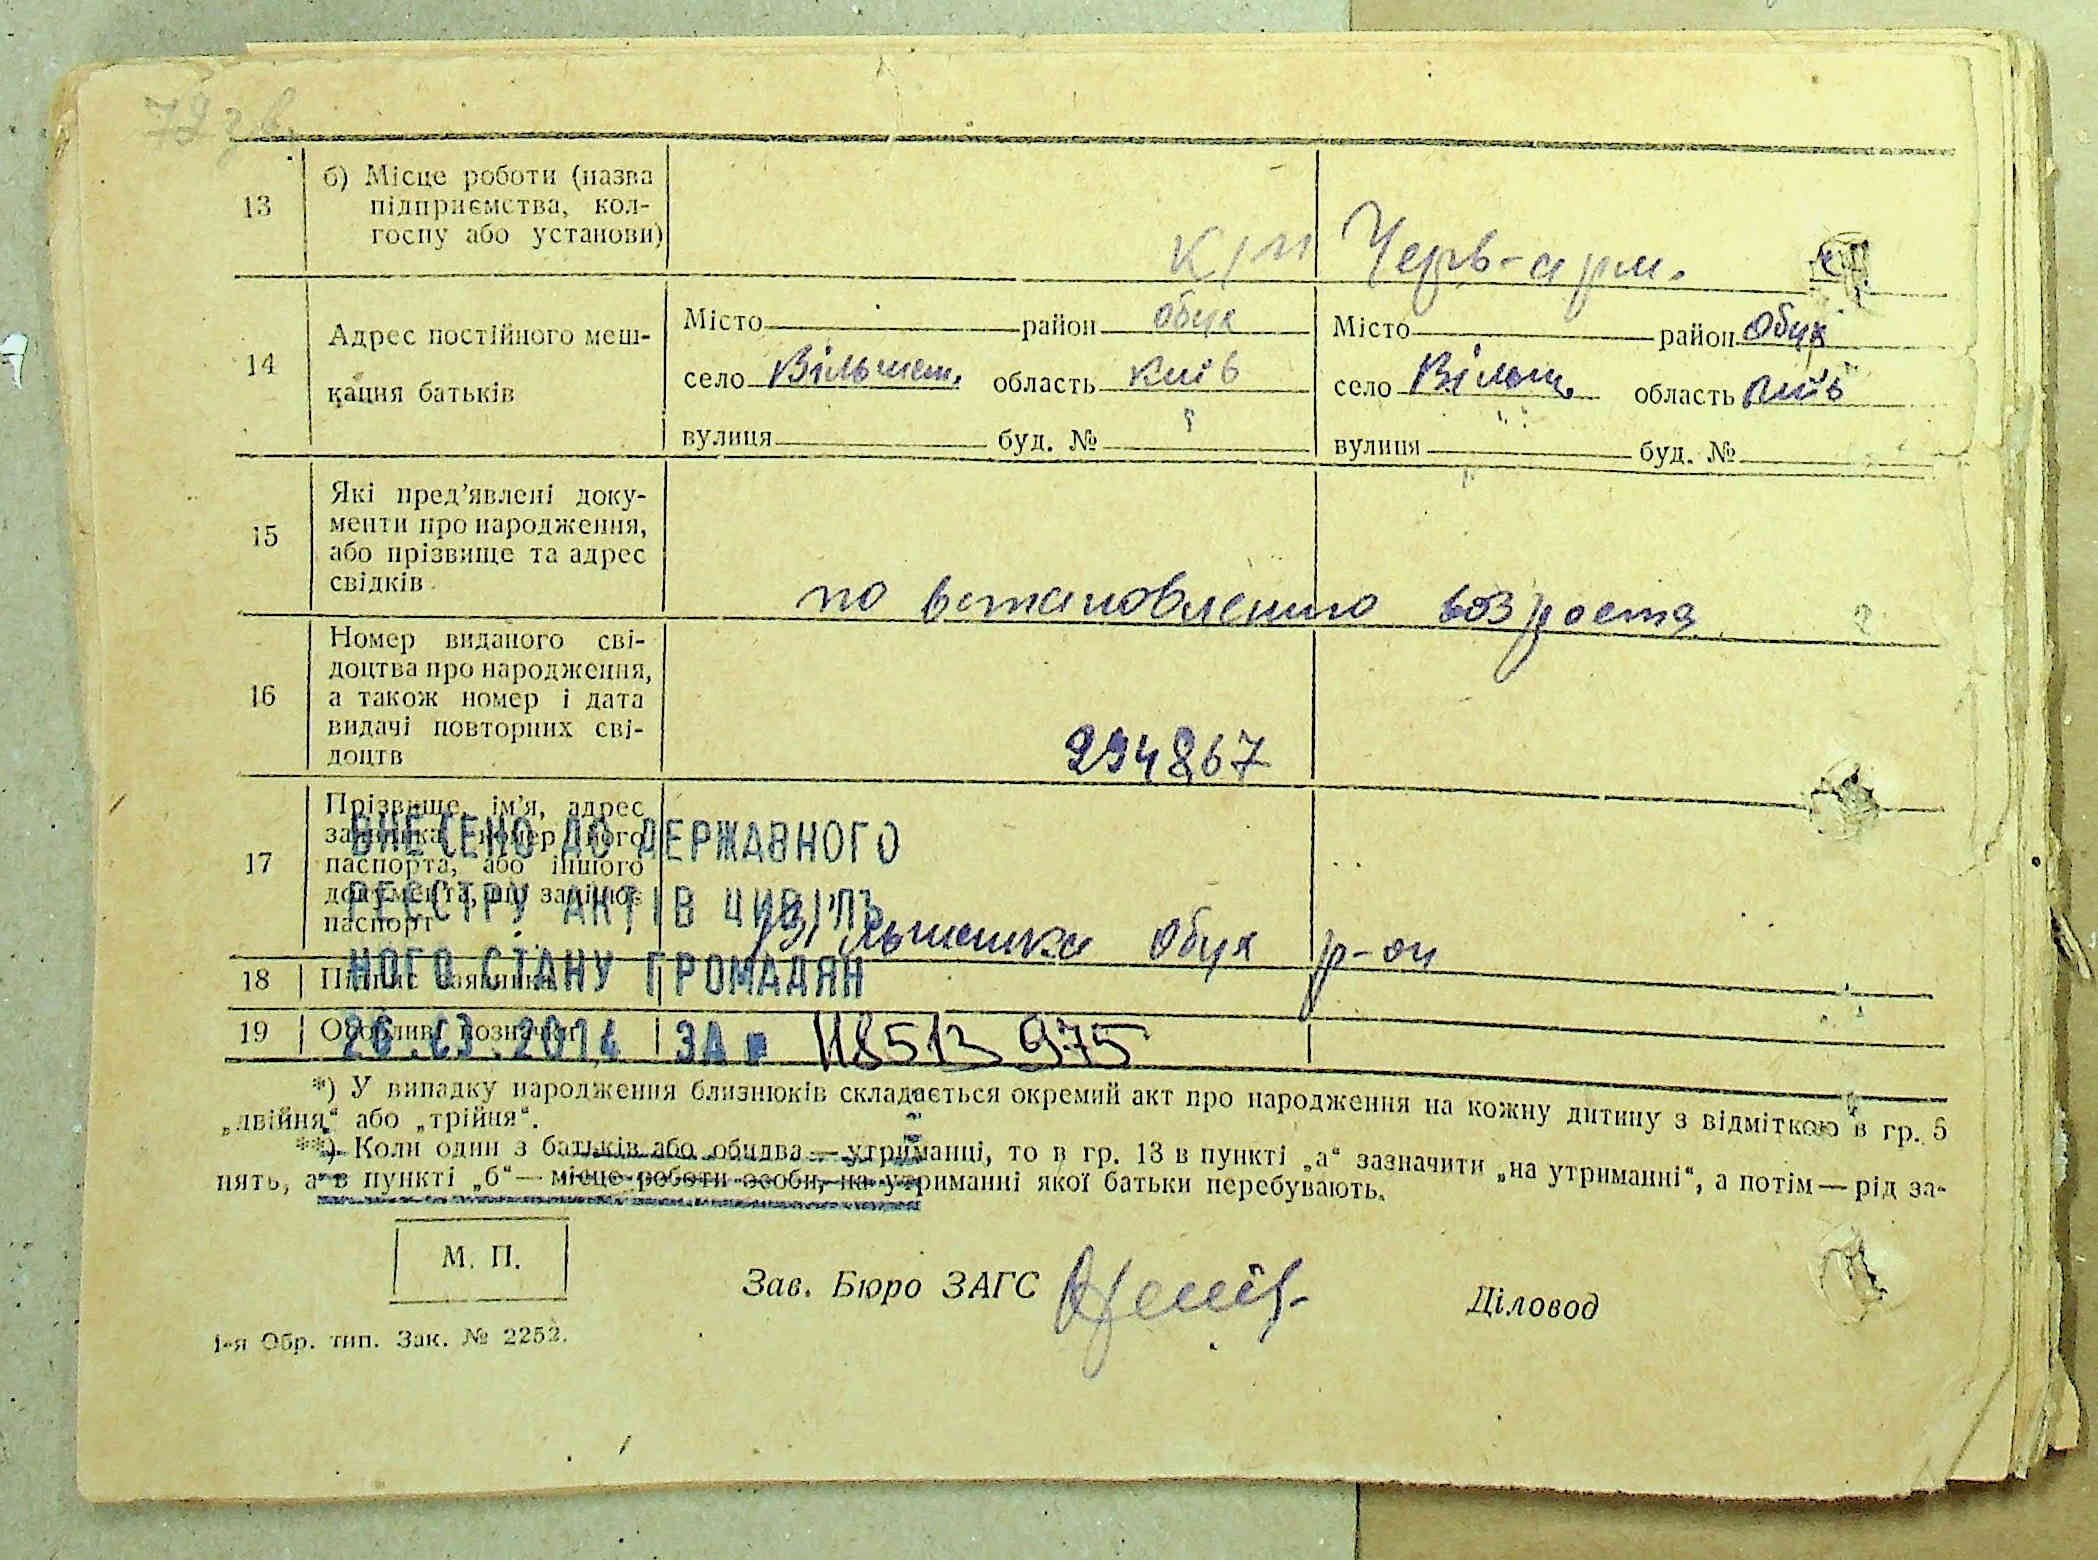 79 зв.
13
б) Місце роботи (назва
підприємства, кол-
госпу або установи)
к/п Черв-арм.
14
Адрес постійного меш-
кання батьків
Місто район Обух
село Вільшан. область Київ
вулиця буд. №
Місто район Обух
село Вільш. область Київ
вулиця буд. №
15
Які пред’явлені доку-
менти про народження,
або прізвище та адрес
свідків
по встановленню возроста
16
Номер виданого сві-
доцтва про народження,
а також номер і дата
видачі повторних сві-
доцтв
294867
17
Прізвище, ім’я, адрес
заявника, номер його
паспорта, або іншого
документа, що замінює
паспорт
Вільшанка Обух р-он
18
Підпис заявника
19
Особливі позначки
ВНЕСЕНО ДО ДЕРЖАВНОГО
РЕЄСТРУ АКТІВ ЦИВІЛЬ
НОГО СТАНУ ГРОМАДЯН
2014 ЗА № 118513975
*) У випадку народження близнюків складається окремий акт про народження на кожну дитину з відміткою в гр. 5
„двійня“ або „трійня“.
**) Коли один з батьків або обидва — утриманці, то в гр. 13 в пункті „а“ зазначити „на утриманні“, а потім — рід за-
нять, а в пункті „б“ — місце роботи особи, на утриманні якої батьки перебувають.
М. П.
Зав. Бюро ЗАГС
Діловод
1-я Обр. тип. Зак. № 2252.